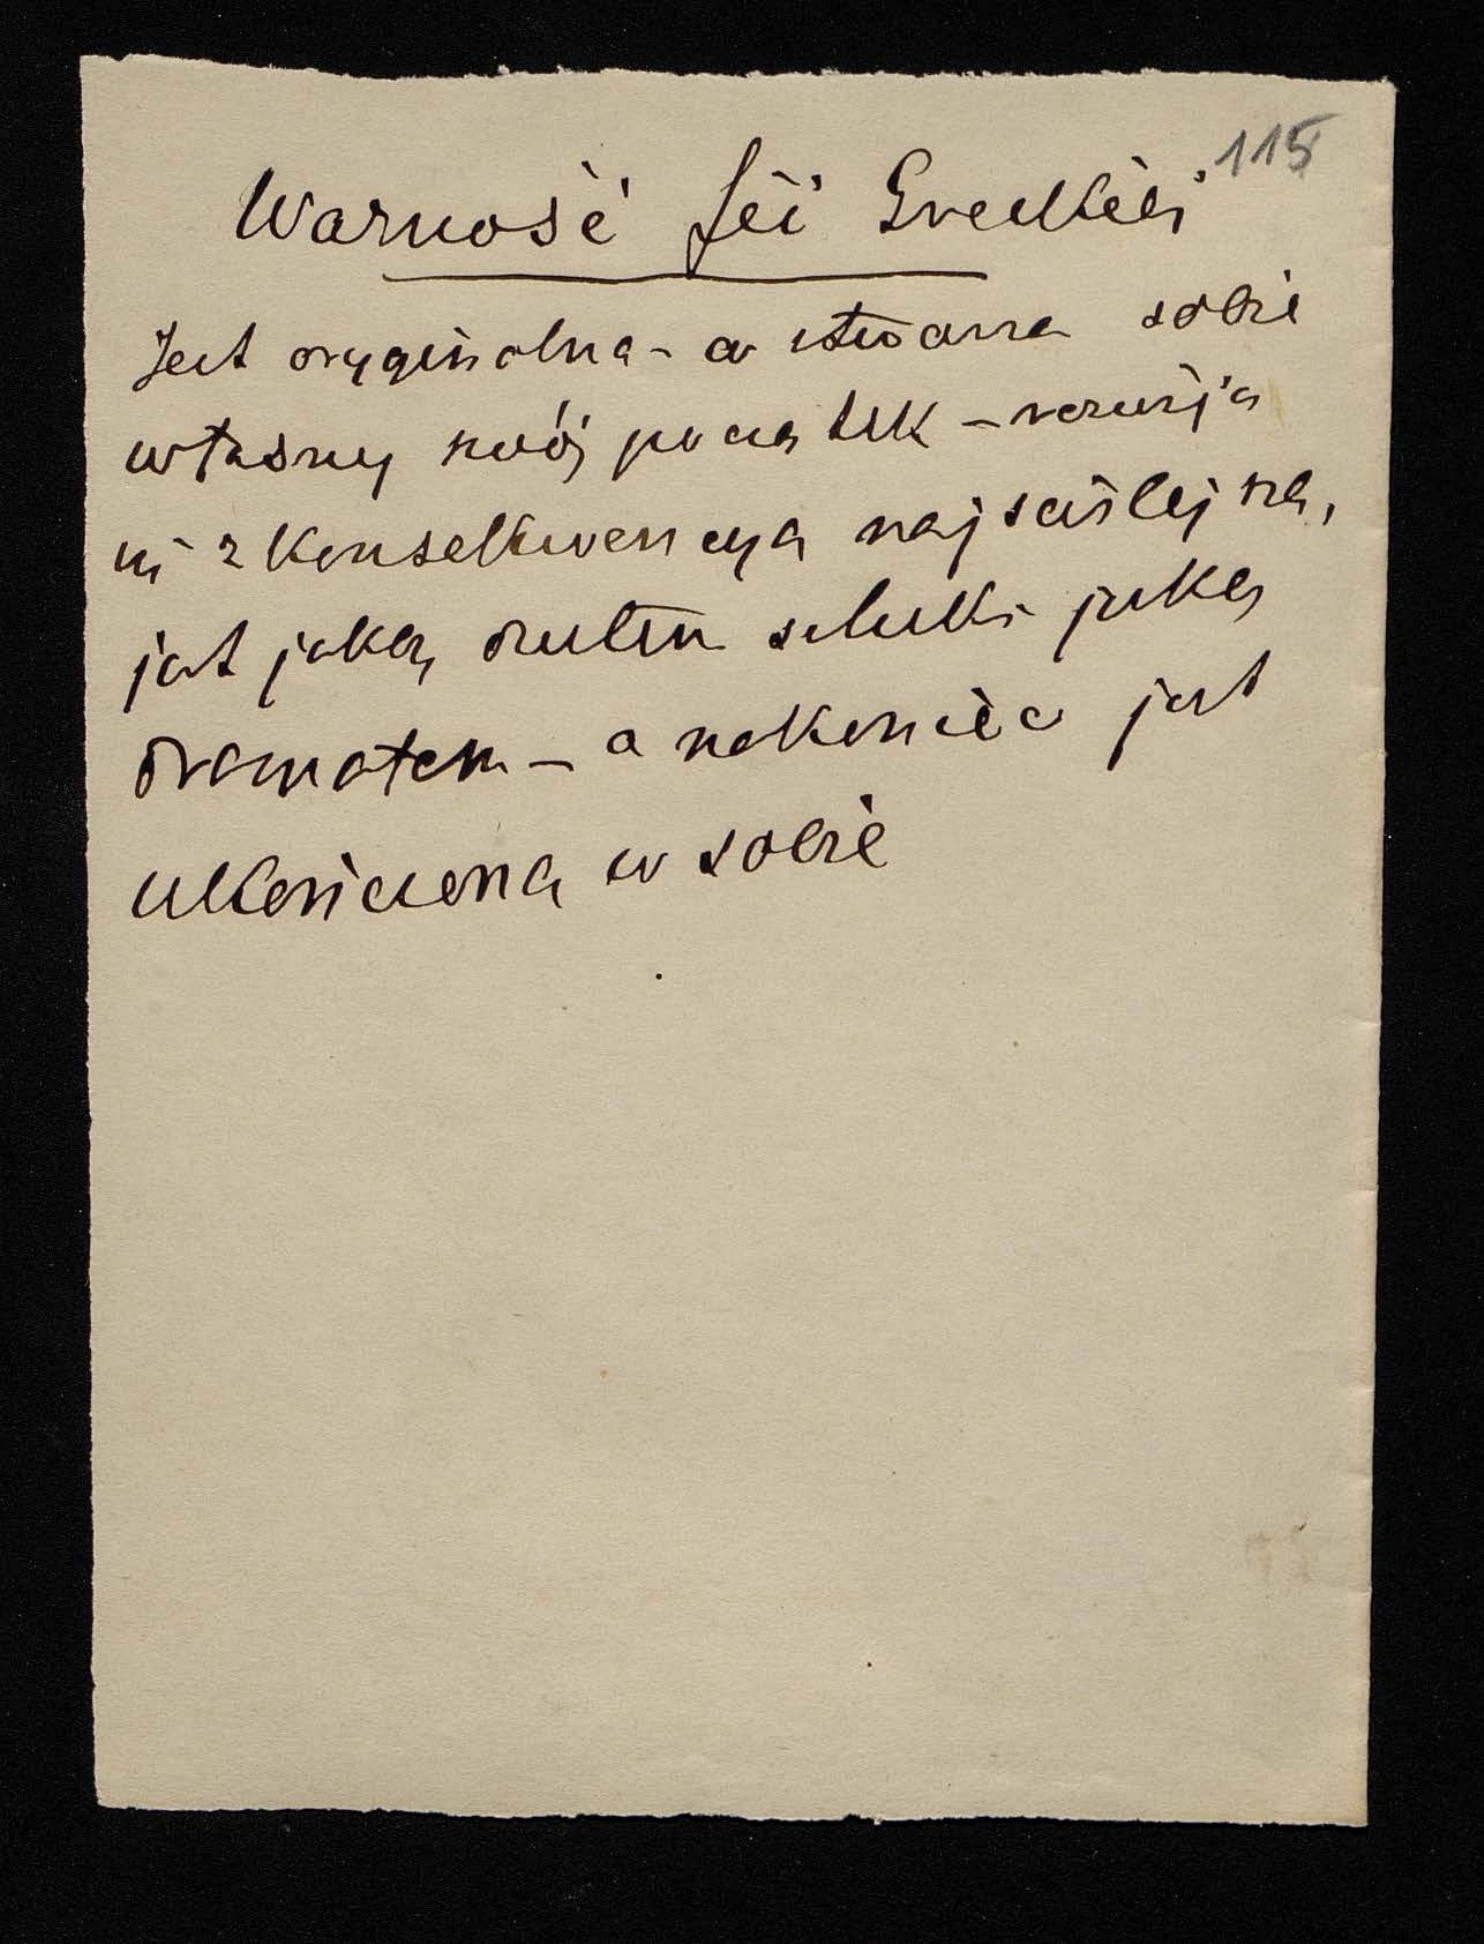 115
Ważność Greckiéj
Jest oryginalna - a stwarza sobie
własny swój początek - rozwija
z konsekwencyą
jest jaką sztuki jaką
dramatem - a nakoniec jest
ukończona w sobie